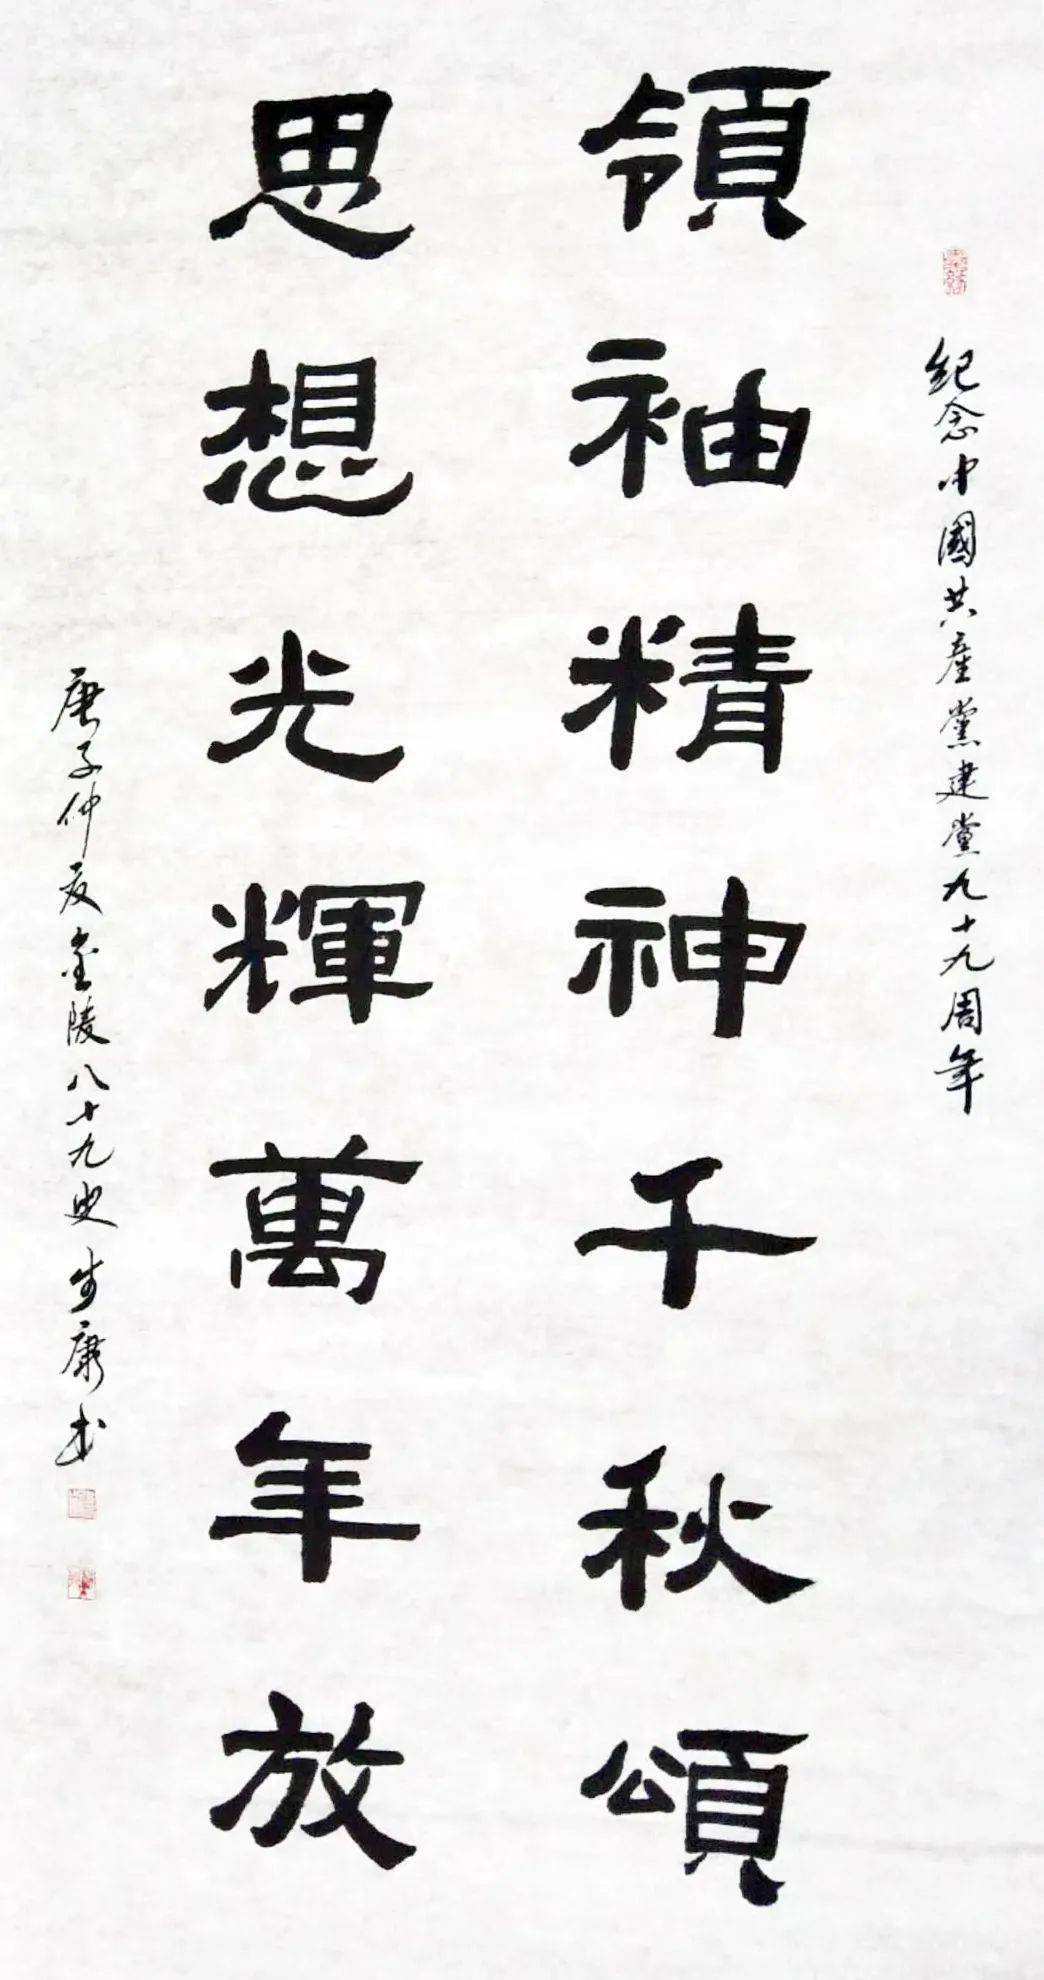 紀念中國共產黨建黨九十九周年
領袖精神千秋頌
思想光輝萬年放
庚子仲夏金陵八十九叟步康書